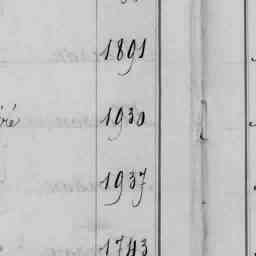 1891
ré 1930
1937
1743